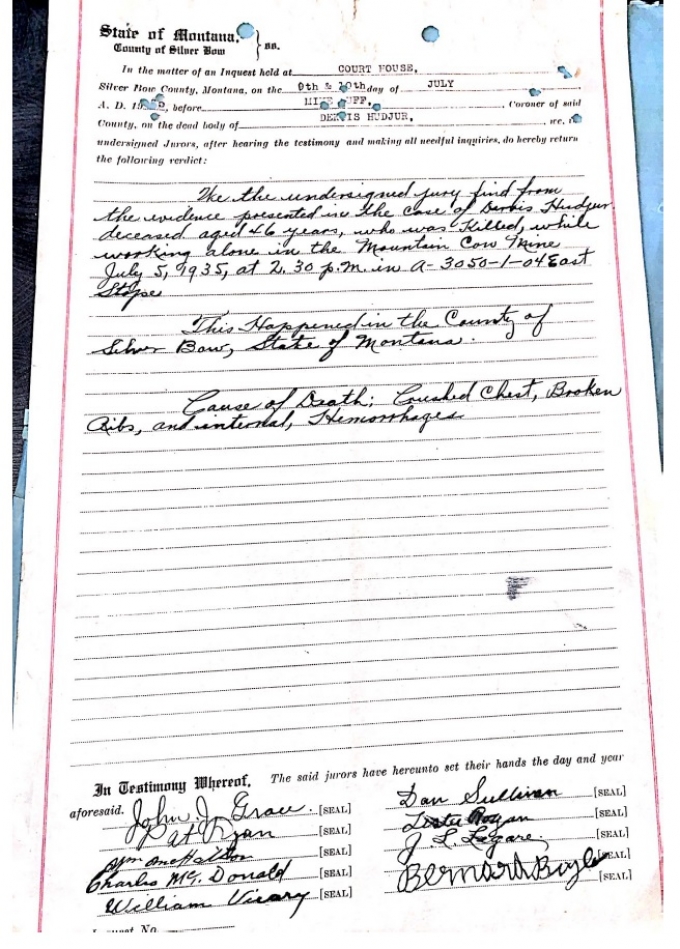 State of Montana,
County of Silver Bow } ss.
In the matter of an Inquest held at COURT HOUSE,
Silver Bow County, Montana, on the 9th & 10th day of JULY
A. D. 19 , before , Coroner of said
County, on the dead body of HUDJUR, we,
undersigned Jurors, after hearing the testimony and making all needful inquiries, do hereby return
the following verdict:
We the undersigned jury find from
the evidence presented in the case of Dervis Hudjur
deceased aged 46 years, who was Killed, while
working alone in the Mountain Cow Mine
July 5, 1935, at 2.30 p.m. in A-3050-1-04 East
Stope
This Happened in the County of
Silver Bow, State of Montana.
Cause of Death; Crushed Chest, Broken
Ribs, and internal, Hemorrhages
In Testimony Whereof, The said jurors have hereunto set their hands the day and year
aforesaid.
John J. Grace. [SEAL]
Pat Ryan [SEAL]
[SEAL]
Charles Mc. Donald [SEAL]
William Vicary [SEAL]
Dan Sullivan [SEAL]
[SEAL]
J. L. [SEAL]
Bernard Boyle [SEAL]
[SEAL]
Inquest No.